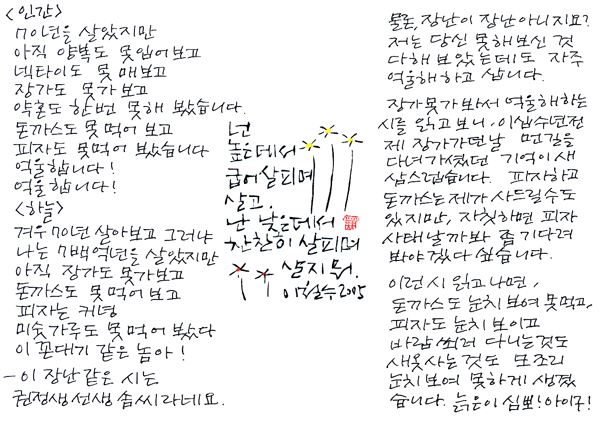 <인간>
70년을 살았지만
아직 양복도 못 입어 보고
넥타이도 못 매보고
장가도 못 가 보고
약혼도 한번 못해 봤습니다.
돈까스도 못 먹어 보고
피자도 못 먹어 봤습니다
억울합니다!
억울합니다!
<하늘>
겨우 70년 살아보고 그러냐
나는 7백억년을 살았지만
아직 장가도 못가보고
돈까스도 못 먹어 보고
피자는 커녕
미숫가루도 못 먹어 봤다
이 꼰대기 같은 놈아!
- 이 장난같은 시는
권정생선생 솜씨라네요.
넌
높은데서
굽어 살피며
살고.
난 낮은데서
찬찬히 살피며
살지 뭐.
이철수 2005
물론, 장난이 장난 아니지요?
저는 당신 못해보신 것
다해 보았는데도 자주
억울해 하고 삽니다.
장가 못가 봐서 억울해하는
시를 읽고 보니, 이십수년전
제 장가가던날 먼길을
다녀가셨던 기억이 새
삼스럽습니다. 피자하고
돈까스는 제가 사드릴수도
있지만, 자칫하면 피자
사태날까봐 좀 기다려
봐야겠다 싶습니다.
이런 시 읽고나면,
돈까스도 눈치 보여 못먹고,
피자도 눈치 보이고
바람 쐬러 다니는것도
새옷 사는것도 모조리
눈치 보여 못하게 생겼
습니다. 늙은이 심뽀! 아이구!